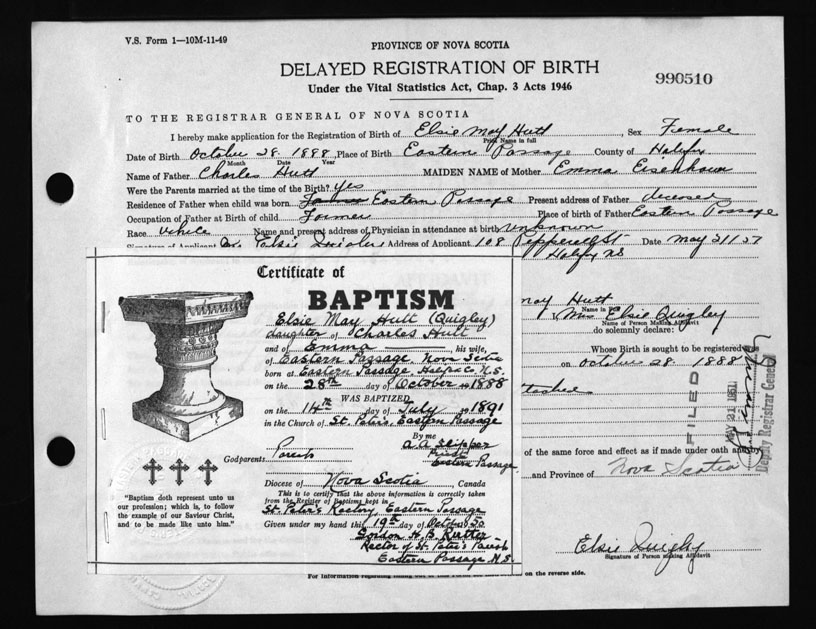 V.S. Form 1—10M-11-49
PROVINCE OF NOVA SCOTIA
DELAYED REGISTRATION OF BIRTH
990510
Under the Vital Statistics Act, Chap. 3 Acts 1946
TO THE REGISTRAR GENERAL OF NOVA SCOTIA
I hereby make application for the Registration of Birth of Elsie May Hutt, Sex Female
Print Name in full
Date of Birth October 28. 1888, Place of Birth Eastern Passage County of Halifax
Month Date Year
Name of Father Charles Hutt MAIDEN NAME of Mother Emma Eisenhaur
Were the Parents married at the time of the Birth? Yes
Residence of Father when child was born Eastern Passage Present address of Father deceased
Occupation of Father at Birth of child Farmer Place of birth of Father Eastern Passage
Race White Name and present address of Physician in attendance at birth unknown
Signature of Applicant Elsie Address of Applicant 108 Pepperell St Date May
Halifax NS
Certificate of
BAPTISM
Elsie May Hutt (Quigley)
daughter of Charles Hutt
and of Emma his wife,
of Eastern Passage, Nova Scotia
born at Eastern Passage Halifax Co N.S.
on the 28th day of October 1888
WAS BAPTIZED
on the 14th day of July 1891
in the Church of St. Peter's Eastern Passage
By me A.A. Slipper
Priest
Eastern Passage.
Godparents Parents
Diocese of Nova Scotia, Canada
This is to certify that the above information is correctly taken
from the Register of Baptisms kept in
St. Peter's Rectory, Eastern Passage
Given under my hand this 19th day of Oct 1950
Gordon H. B.
Rector of St. Peter's Parish
Eastern Passage. N.S.
"Baptism doth represent unto us
our profession; which is, to follow
the example of our Saviour Christ,
and to be made like unto him."
may Hutt
Name in
Mrs Elsie Quigley
Name of Person Making Affidavit
do solemnly declare:
Whose Birth is sought to be registered
on October 28. 1888
FILED
MAY 21 1951
Deputy Registrar General
of the same force and effect as if made under oath
and Province of Nova Scotia
Elsie Quigley
Signature of Person Making Affidavit
For information regarding filling out on the reverse side.